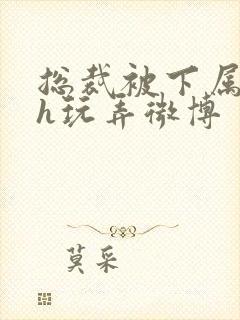 总裁被下属
h玩弄微博
莫采